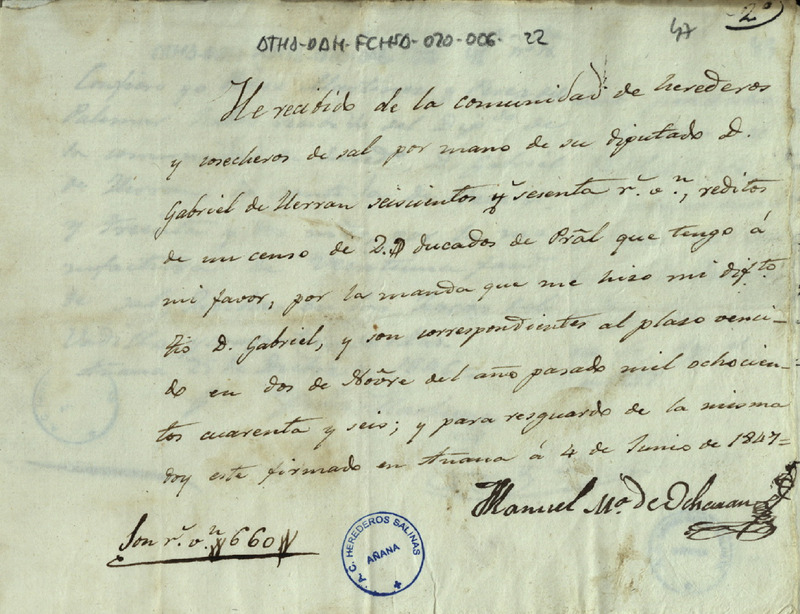 2º
47
ATHA-DAH-FCHSA-020-006-22
He recibido de la comunidad de herederos
y cosecheros de sal por mano de su diputado D.
Gabriel de Herran seiscientos y sesenta r.ˢ v.ⁿ, reditos
de un censo de 2 ducados de Prãl que tengo á
mi favor, por la manda que me hizo mi dif.ᵗᵒ
tio D. Gabriel, y son correspondientes al plazo venci-
do en dos de Noṽre del año pasado mil ochocien-
tos cuarenta y seis; y para resguardo de la misma
doy este firmado en Añana á 4 de Junio de 1847=
Manuel M.ª de Ochoran
Son r.ˢ v.ⁿ 660
A.C. HEREDEROS SALINAS
AÑANA